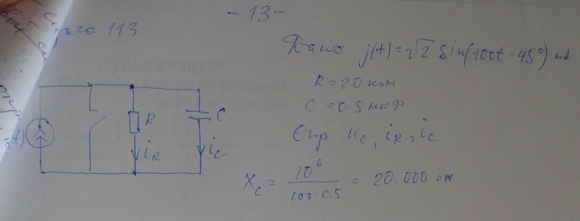 - 13 -
113
Дано j(t) = √2 Sin(100t - 45°) mA
R = 20 ком
C = 0.5 мкф
Опр u_C, i_R, i_C
R
C
i_R
i_C
X_C = 10⁶ / 100·0.5 = 20.000 ом